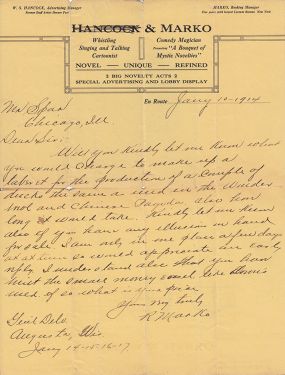 W. S. HANCOCK, Advertising Manager
MARKO, Booking Manager
HANCOCK & MARKO
Whistling
Singing and Talking
Cartoonist
Comedy Magician
Presenting "A Bouquet of
Mystic Novelties"
NOVEL — UNIQUE — REFINED
2 BIG NOVELTY ACTS 2
SPECIAL ADVERTISING AND LOBBY DISPLAY
En Route Jany 10-1914
Chicago, Ill
Dear Sir:-
Will you kindly let me know what
you would charge to make up a
for the production of a couple of
ducks the same as used in the
and Chinese Pagoda also how
long it would take. Kindly let me know
also if you have any illusion on hand
for sale. I am only in one place a few days
at a time so would appreciate an early
reply. I understand also that you have
the smaller model
used if so what is your price
Yours very truly
R Marko
Gen'l Delv
Augusta, Wis
Jany 14-15-16-17